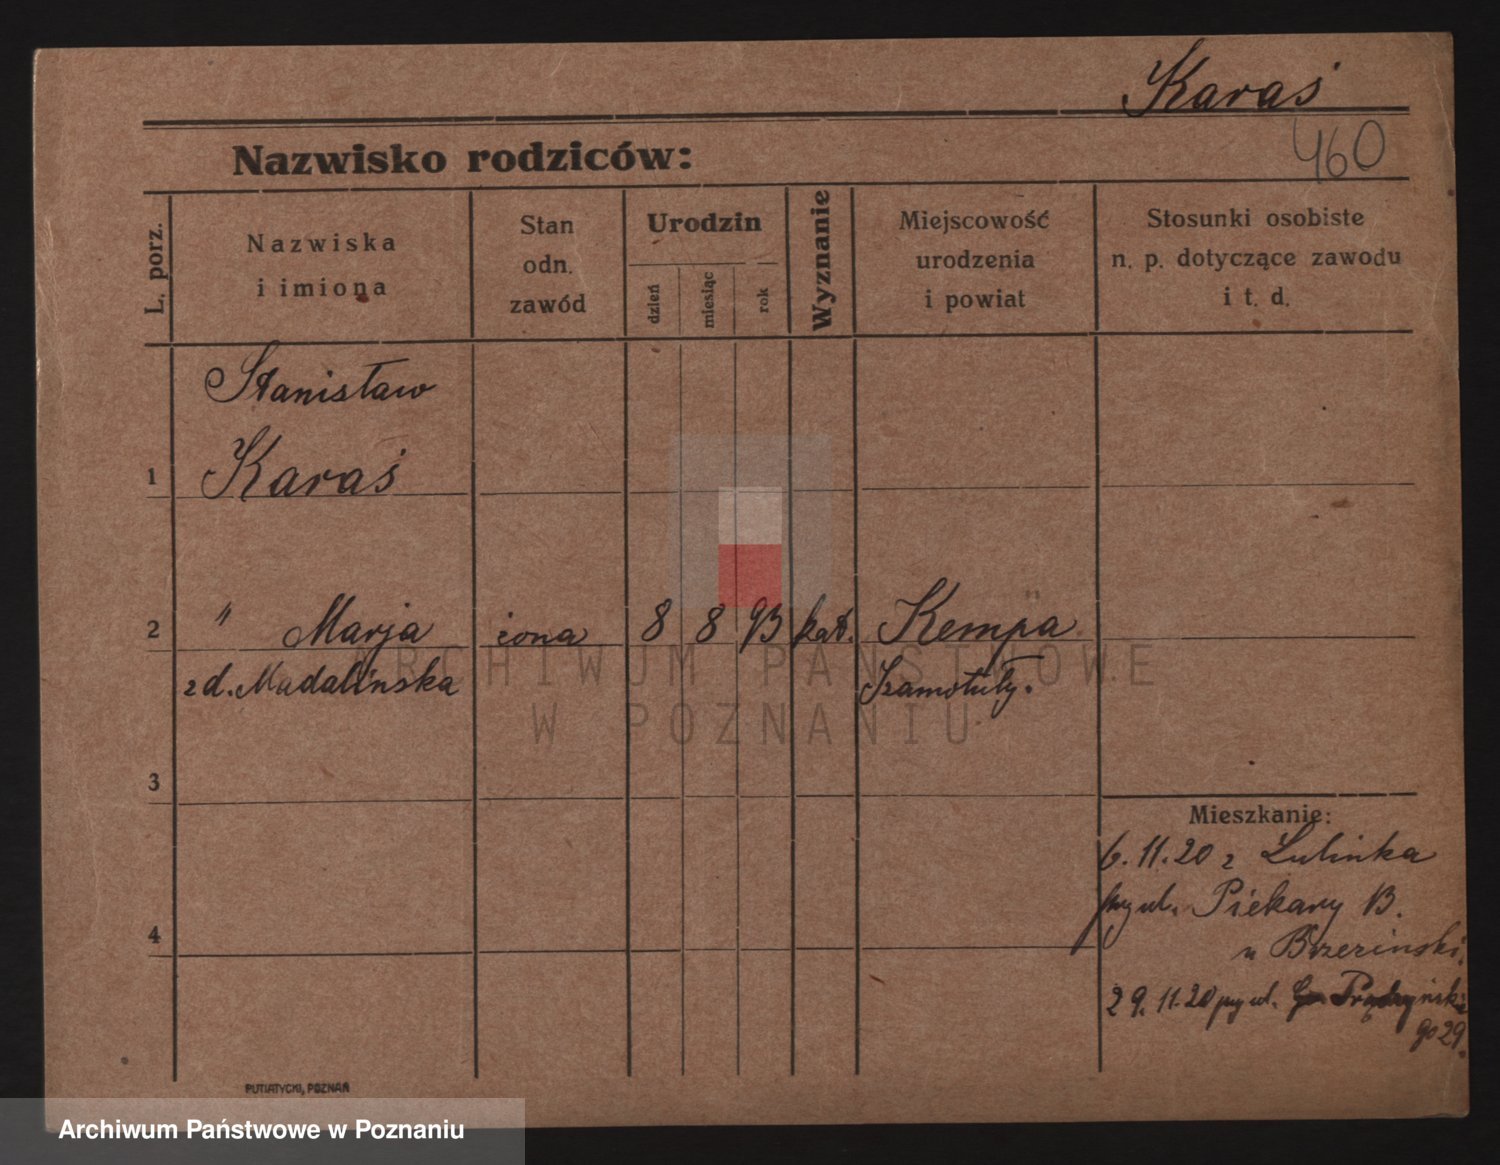 Karaś
460
Nazwisko rodziców:
L. porz.
Nazwiska
i imiona
Stan
odn.
zawód
Urodzin
dzień
miesiąc
rok
Wyznanie
Miejscowość
urodzenia
i powiat
Stosunki osobiste
n. p. dotyczące zawodu
i t. d.
Stanisław
1 Karaś
2 " Marja żona 8 8 93 kat. Kempa
z d. Madalińska Szamotuły.
3
Mieszkanie:
6.11.20 z Lulinka
przy ul. Piekary 13.
u Brzeziński.
4
29.11.20 przy ul. Prądzyńskie
go 29.
PUTIATYCKI, POZNAŃ
ARCHIWUM PAŃSTWOWE
W POZNANIU
Archiwum Państwowe w Poznaniu